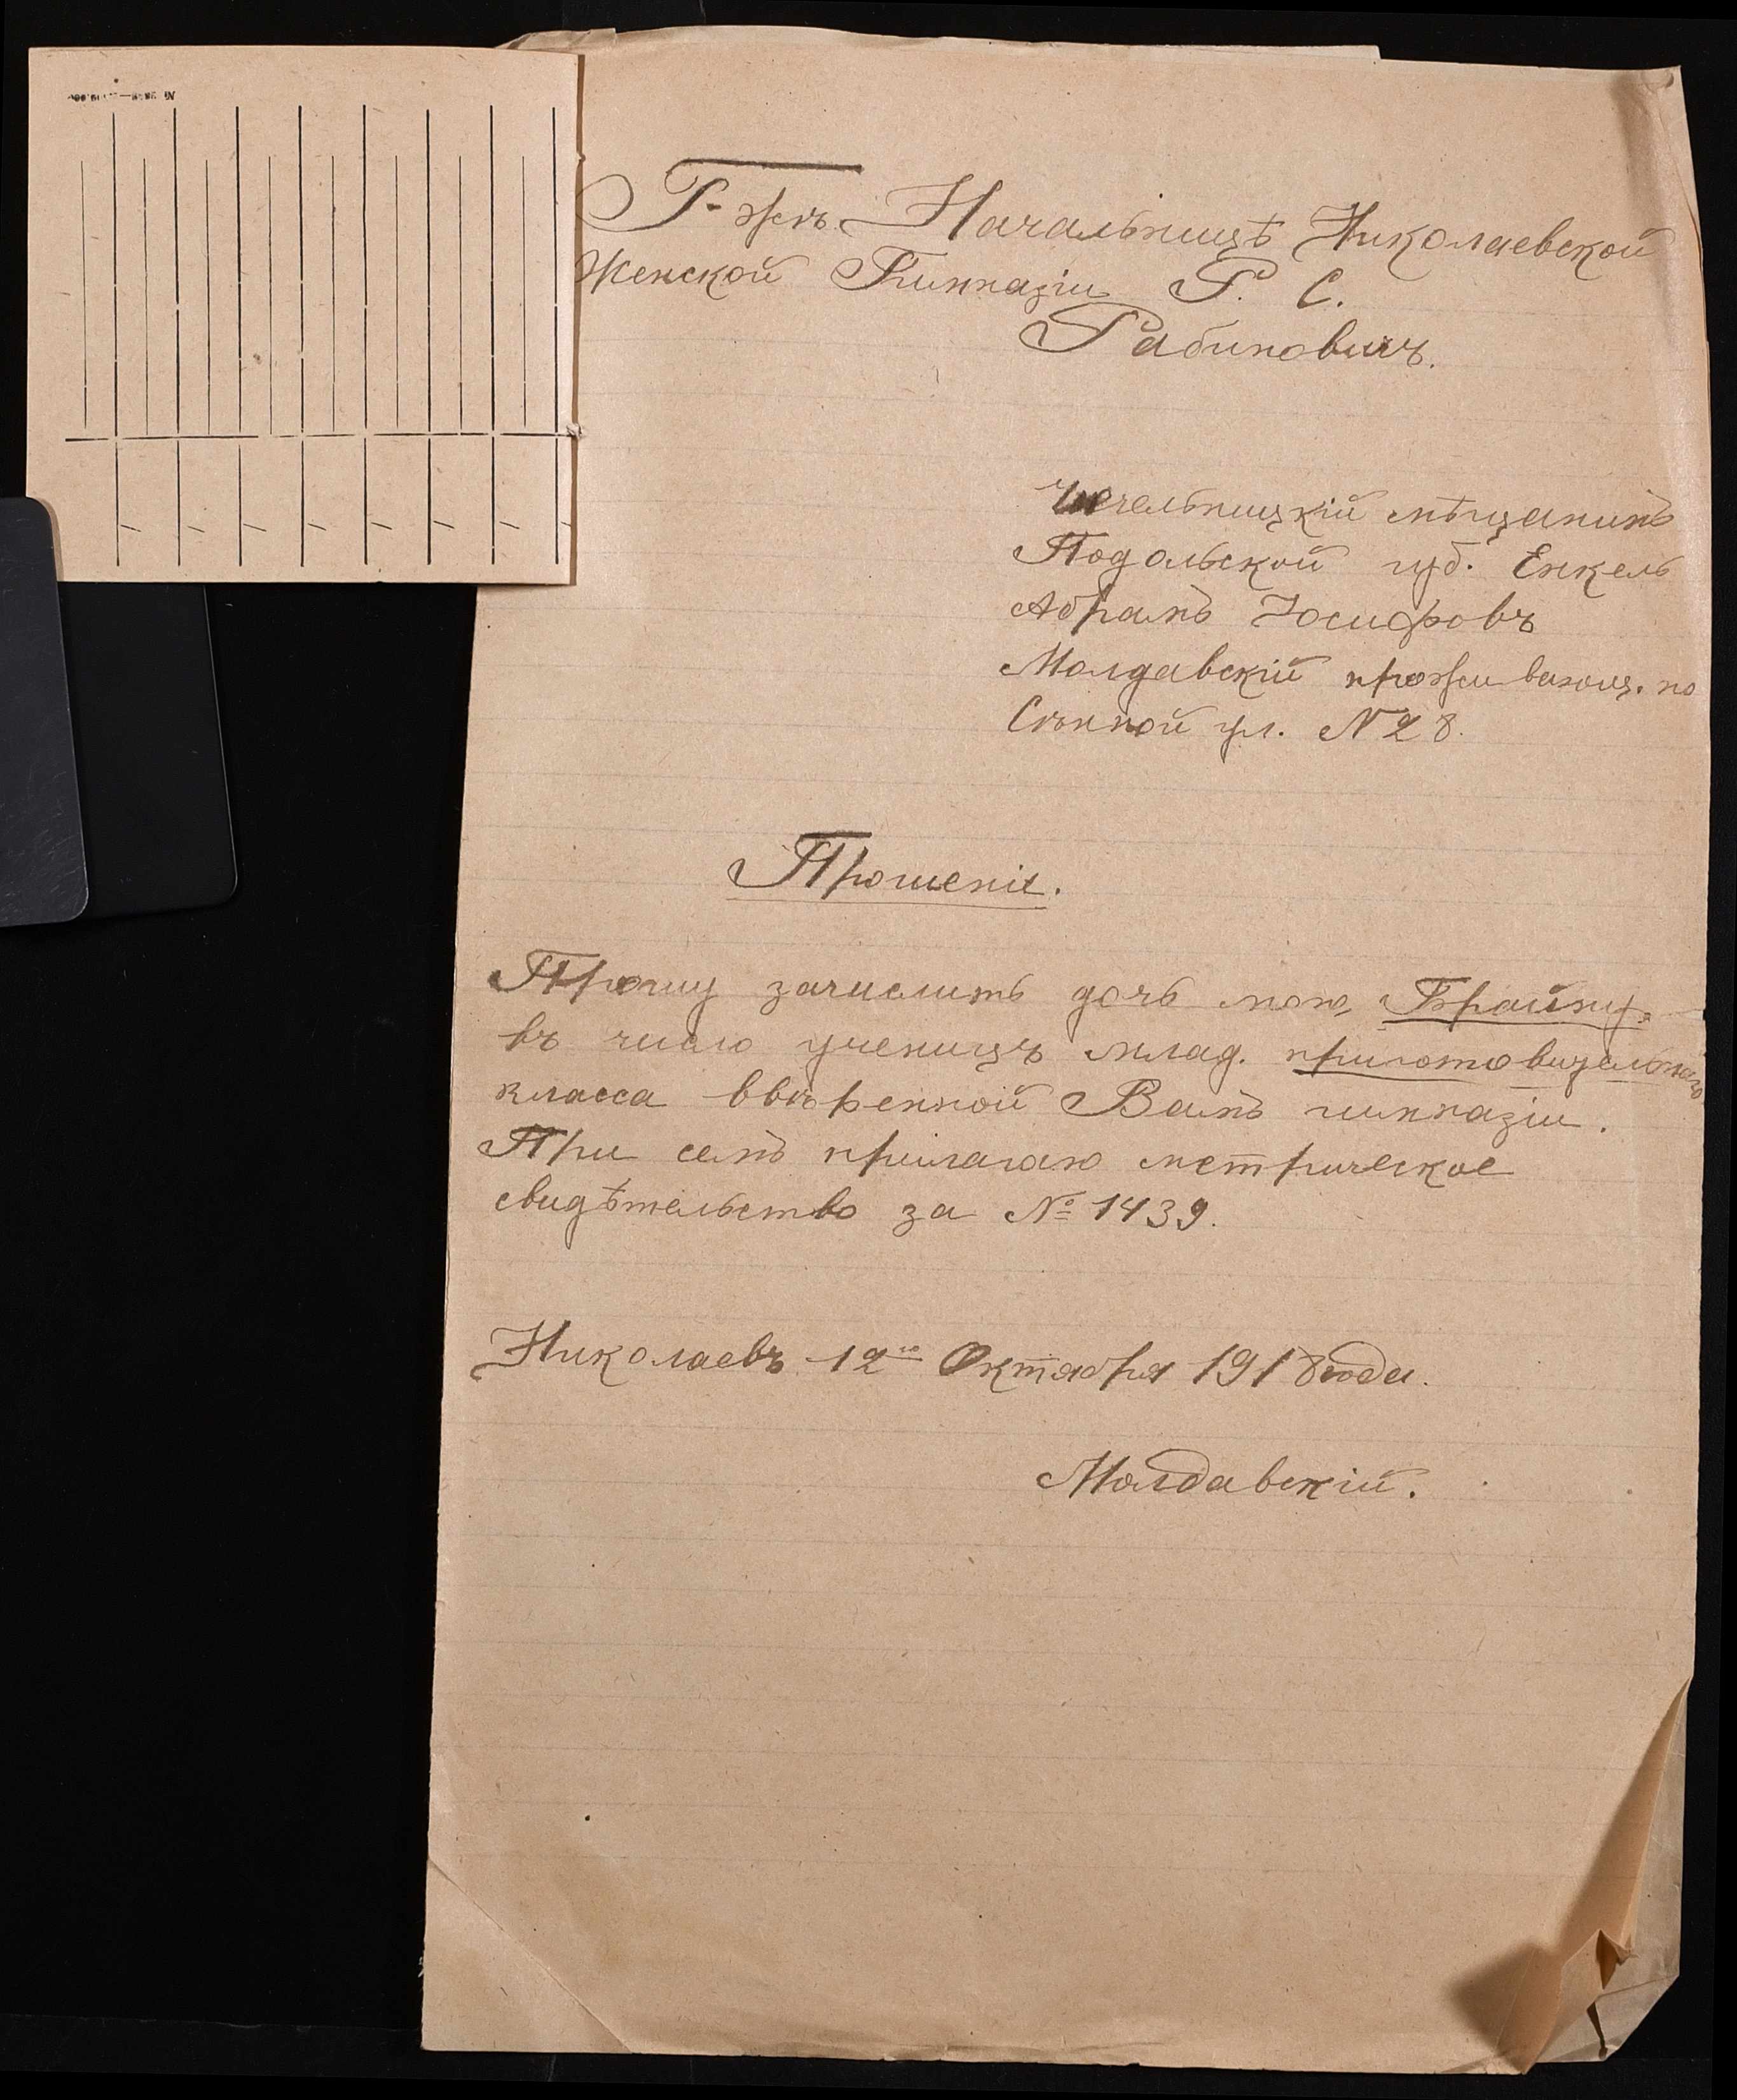 Г-жѣ Начальницѣ Николаевской
Женской Гимназіи Р. С.
Рабиновичъ.
Чечельницкій мѣщанинъ
Подольской губ. Енкель
Абрамъ Іосифовъ
Молдавскій проживающ. по
Сѣнной ул. N 28.
Прошеніе.
Прошу зачислить дочь мою, Брайну,
въ число ученицъ млад. приготовительнаго
класса ввѣренной Вамъ гимназіи.
При семъ прилагаю метрическое
свидѣтельство за № 1439.
Николаевъ 12го Октября 1918 года.
Молдавскій.